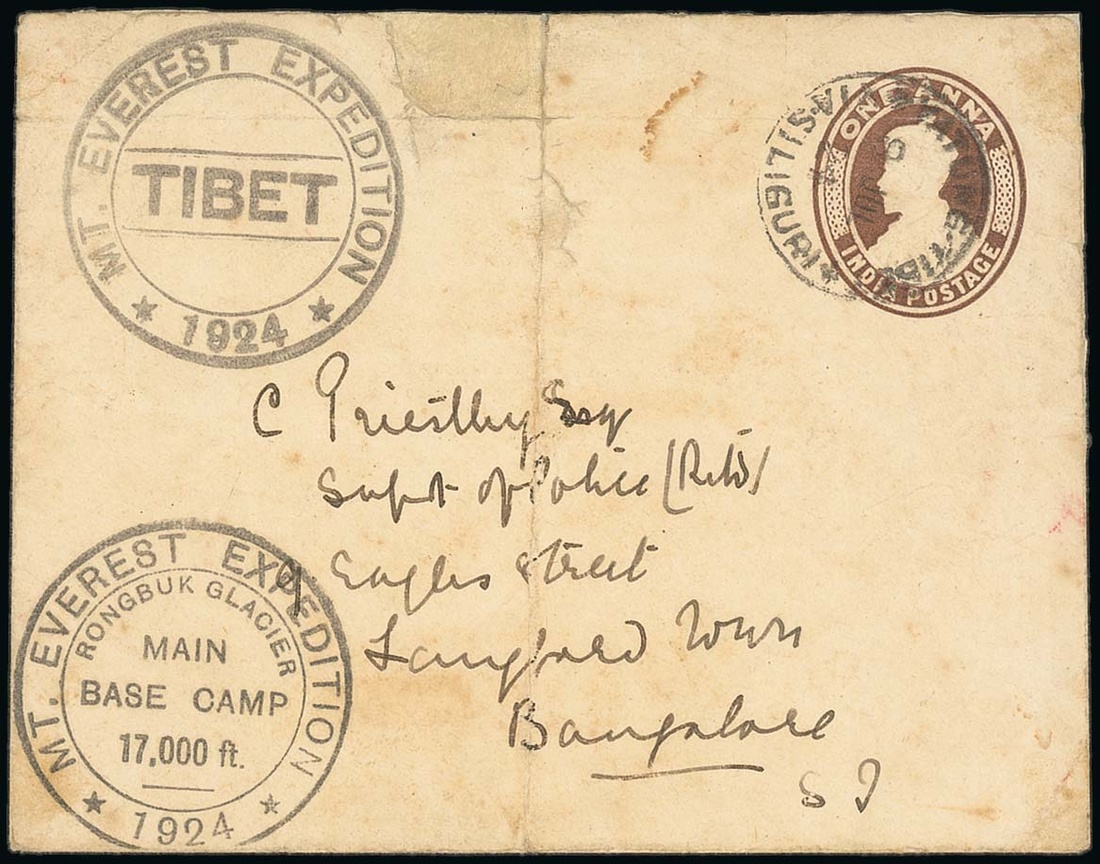 MT. EVEREST EXPEDITION
TIBET
★ 1924 ★
ONE ANNA
INDIA POSTAGE
VIA SILIGURI ★
C Priestley Esq
Supt of Police (Retd)
9 Eagles Street
Langford Town
Bangalore
S I
MT. EVEREST EXPEDITION
RONGBUK GLACIER
MAIN
BASE CAMP
17,000 ft.
★ 1924 ★